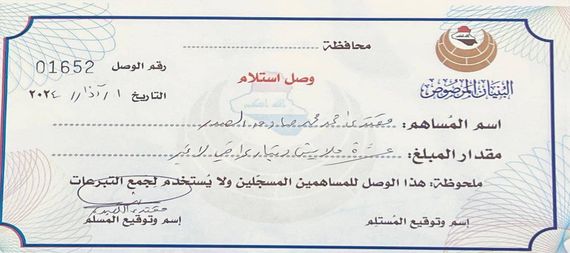 محافظة
البنيان المرصوص
رقم الوصل 01652
وصل استلام
التاريخ ١ / آذار / ٢٠٢٤
اسم المُساهم: مقتدى محمد محمد صادق الصدر
مقدار المبلغ: عشرة ملايين دينار عراقي لا غير
ملحوظة: هذا الوصل للمساهمين المسجّلين ولا يُستخدم لجمع التبرعات
مقتدى الصدر
إسم وتوقيع المُستلم
إسم وتوقيع المسلم